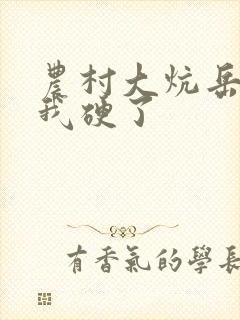 農村大炕岳
我硬了
有香氣的學長